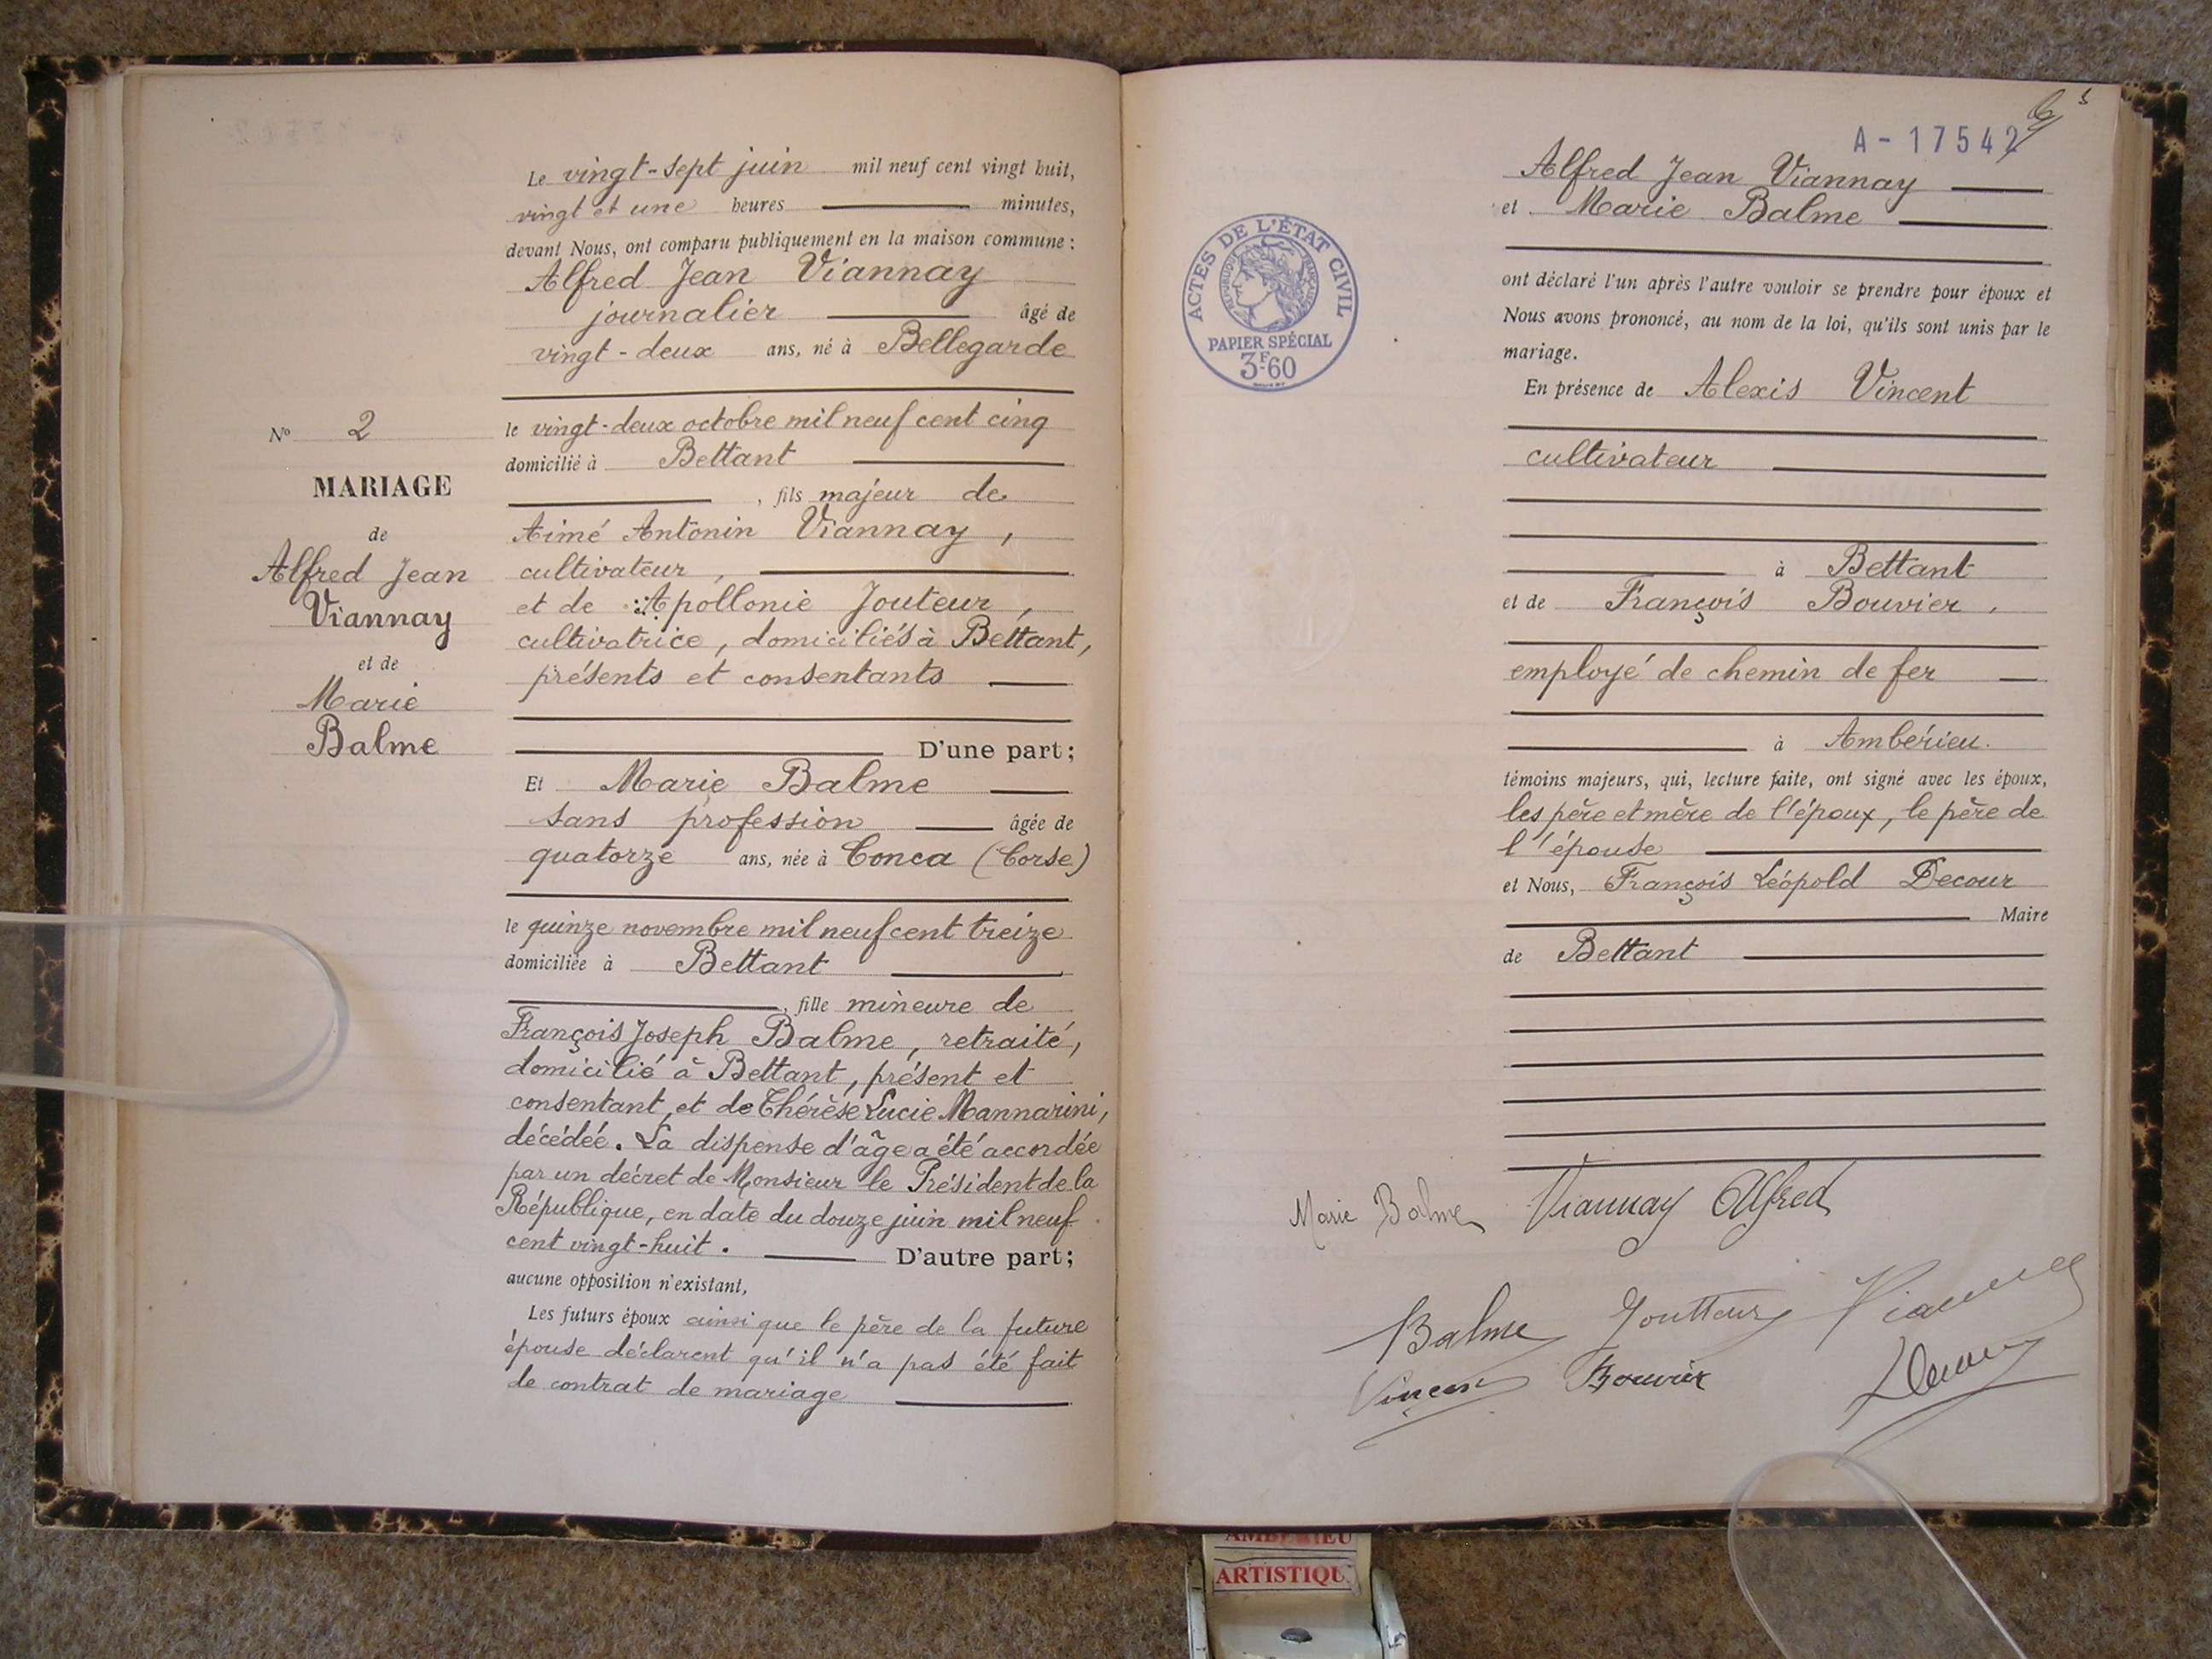 Le vingt-sept juin mil neuf cent vingt huit,
vingt et une heures minutes,
devant Nous, ont comparu publiquement en la maison commune :
Alfred Jean Viannay
journalier âgé de
vingt-deux ans, né à Bellegarde
le vingt-deux octobre mil neuf cent cinq
domicilié à Bettant
, fils majeur de
Aimé Antonin Viannay,
cultivateur,
et de Apollonie Jouteur,
cultivatrice, domiciliés à Bettant,
présents et consentants
D'une part;
Et Marie Balme
sans profession âgée de
quatorze ans, née à Conca (Corse)
le quinze novembre mil neuf cent treize
domiciliée à Bettant
, fille mineure de
François Joseph Balme, retraité,
domicilié à Bettant, présent et
consentant, et de Thérèse Lucie Mannarini,
décédée. La dispense d'âge a été accordée
par un décret de Monsieur le Président de la
République, en date du douze juin mil neuf
cent vingt-huit. D'autre part;
aucune opposition n'existant,
Les futurs époux ainsi que le père de la future
épouse déclarent qu'il n'a pas été fait
de contrat de mariage
No 2
MARIAGE
de
Alfred Jean
Viannay
et de
Marie
Balme
A-17542
Alfred Jean Viannay
et Marie Balme
ont déclaré l'un après l'autre vouloir se prendre pour époux et
Nous avons prononcé, au nom de la loi, qu'ils sont unis par le
mariage.
En présence de Alexis Vincent
cultivateur
à Bettant
et de François Bouvier,
employé de chemin de fer
à Ambérieu.
témoins majeurs, qui, lecture faite, ont signé avec les époux,
les père et mère de l'époux, le père de
l'épouse
et Nous, François Léopold Decour
Maire
de Bettant
ACTES DE L'ÉTAT CIVIL
RÉPUBLIQUE FRANÇAISE
PAPIER SPÉCIAL
3F60
Marie Balme Viannay Alfred
Balme Joutteur Viannay
Vincent Bouvier Decour
AMBERIEU
ARTISTIQU